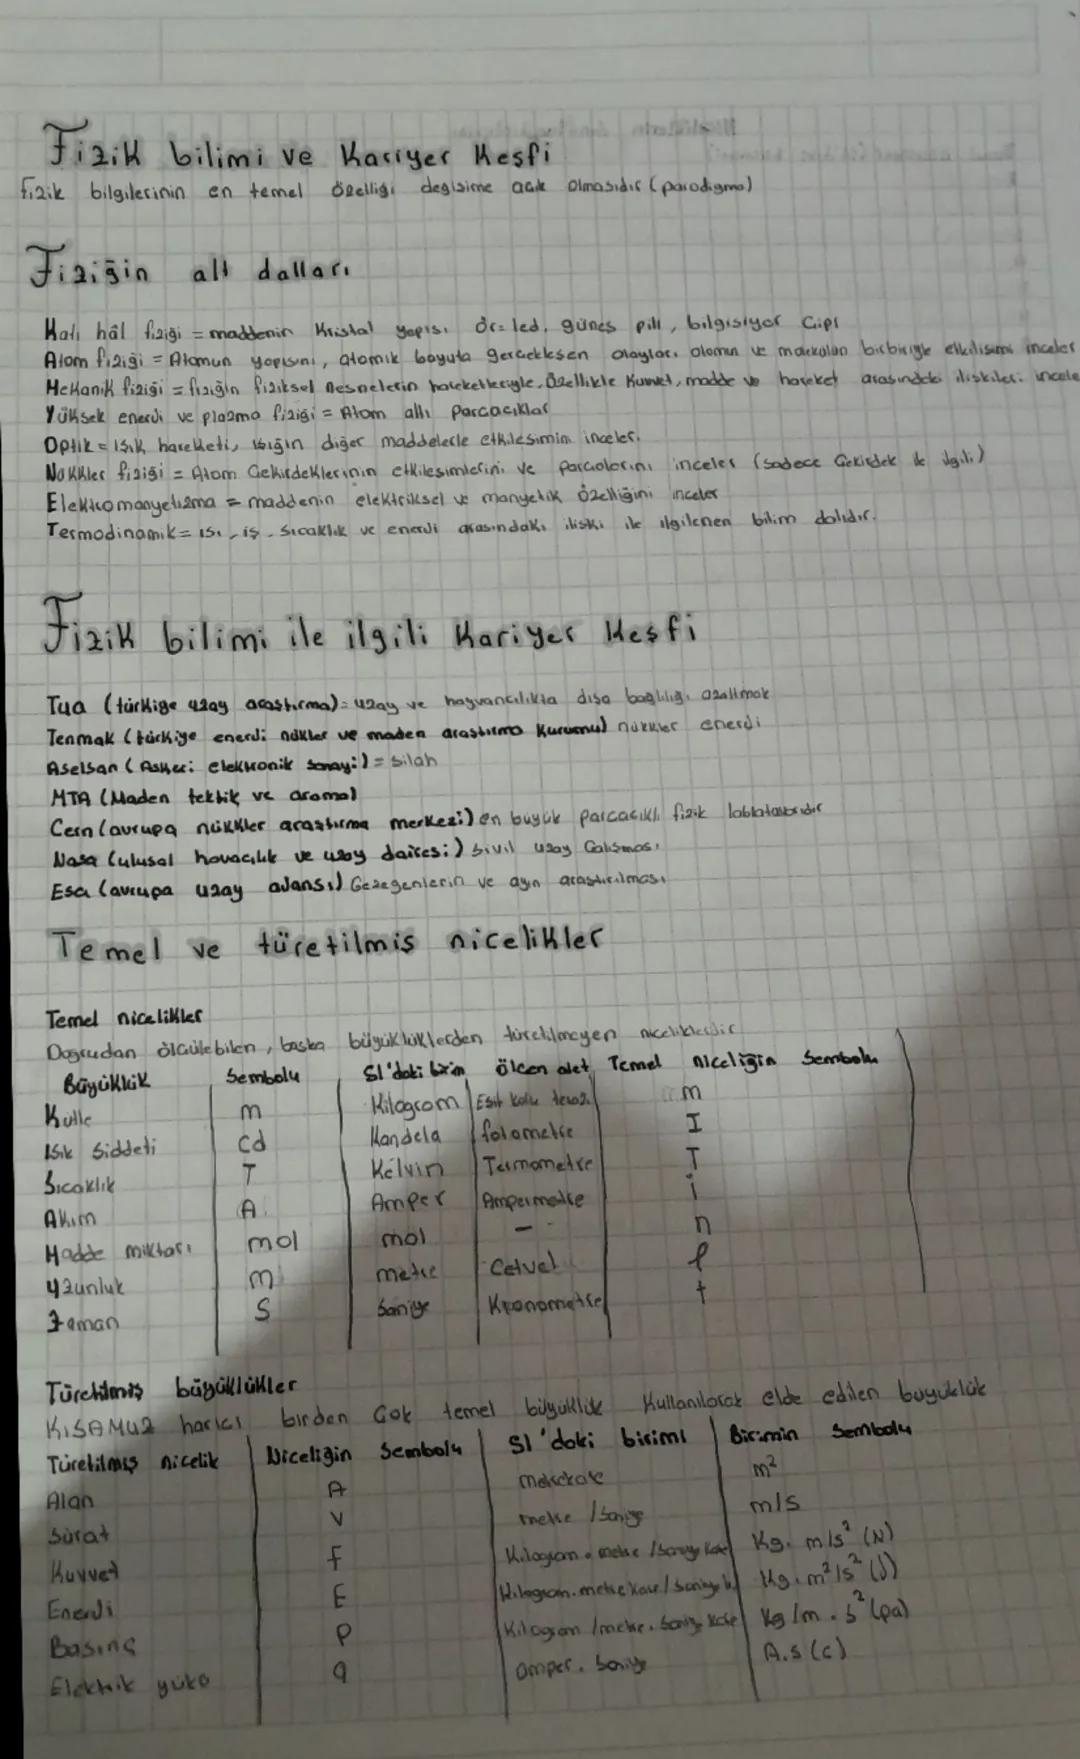 Fizik bilimi ve Kariyer Keşfi
fizik bilgilerinin en temel özelliği degisime acık olmasıdır (parodigma)
Fiziğin alt dalları
Katı hâl fiziği = maddenin Kristal yapısı ör= led, güneş pili, bilgisiyar Çipi
Atom fiziği = Atomun yapısını, atomik boyuta gerceklesen olayları atomun ve birbiriyle etkilisimi inceler
Mekanik fiziği = fiziğin fiziksel nesnelerin hareketleriyle, Özellikle Kuvvet, madde ve hareket arasındaki iliskileri incele
Yüksek enerji ve plazma fiziği = Atom altı Parçacıklar
Optik = Isık hareketi, ısığın diğer maddelerle etkilesimini inceler.
Nükkler fiziği = Atom Cekirdeklerinin etkilesimlerini ve inceler (Sadece Cekirdek ile ilgili)
Elektromanyetizma = maddenin elektriksel ve manyetik özelliğini inceler
Termodinamik = ısı, iş, Sıcaklık ve enerji arasındaki iliski ile ilgilenen bilim dalıdır.
Fizik bilimi ile ilgili Kariyer Keşfi
Tua (türkiye uzay arastırma) = uzay ve hayvancılıkta dısa bağlılığı azaltmak
Tenmak (türkiye enerji nükler ve maden arastırma Kurumu) nükkler enerji
Aselsan (Askeri elektronik Sanayi) = Silah
MTA (Maden tektik ve arama)
Cern (avrupa nükkler arastırma merkezi) en büyük parcacıklı fizik
Nasa (ulusal havacılık ve uzay dairesi) Sivil uzay Calısması
Esa (avrupa uzay ajansı) Gezegenlerin ve ayın arastırılması
Temel ve türetilmiş nicelikler
Temel nicelikler
Dogrudan ölcülebilen, baska büyüklüklerden türetilmeyen niceliklerdir
Büyüklük Sembolu SI'daki birim ölcen alet Temel niceliğin Sembolu
Kütle m Kilogram Esit kollu terazi m
Isık Siddeti cd Kandela fotometre I
Sıcaklık T Kelvin Termometre T
Akım A Amper Ampermetre i
Madde miktarı mol mol - n
Uzunluk m metre Cetvel l
Zaman S Saniye Kronometre t
Türetilmiş büyüklükler
KISAMUZ harici birden Cok temel büyüklük Kullanılarak elde edilen buyuklük
Türetilmiş nicelik Niceliğin Sembolu SI'daki birimi Birimin Sembolu
Alan A metrekare m²
Sürat V metre / Saniye m/s
Kuvvet F Kilogram . metre / Saniye kare Kg. m/s² (N)
Enerji E Kilogram. metre kare / Saniye k Kg. m²/s² (J)
Basınç P Kilogram / metre. Saniye kare Kg/m. s² (pa)
Elektrik yükü q amper. Saniye A.s (c)